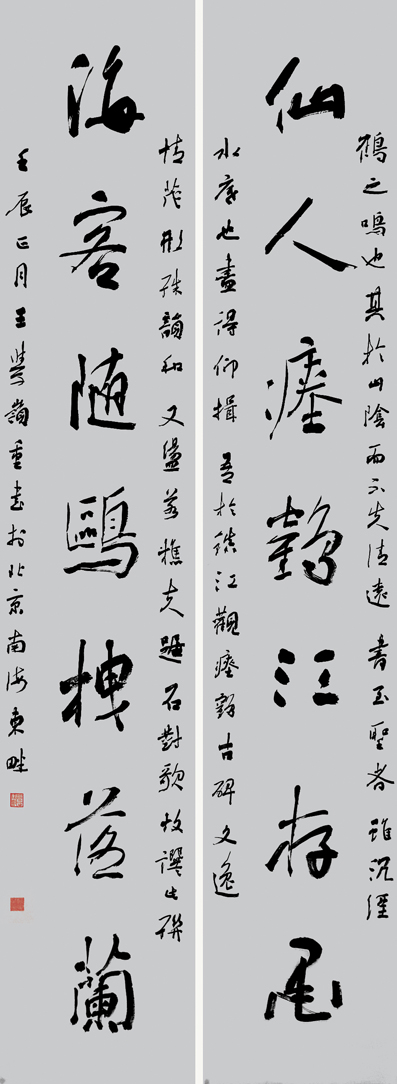 鶴之鳴也其於山陰而不失清遠書至聖者雖沉經
仙人瘞鶴江存尾
水底也盡得仰揖吾於鎮江觀瘞鶴古碑文逸
情茂形殊韻和又盪若樵夫踞石對歌故譔此聯
海客随鷗拽落蘭
壬辰正月王學嶺重書於北京南海東畔